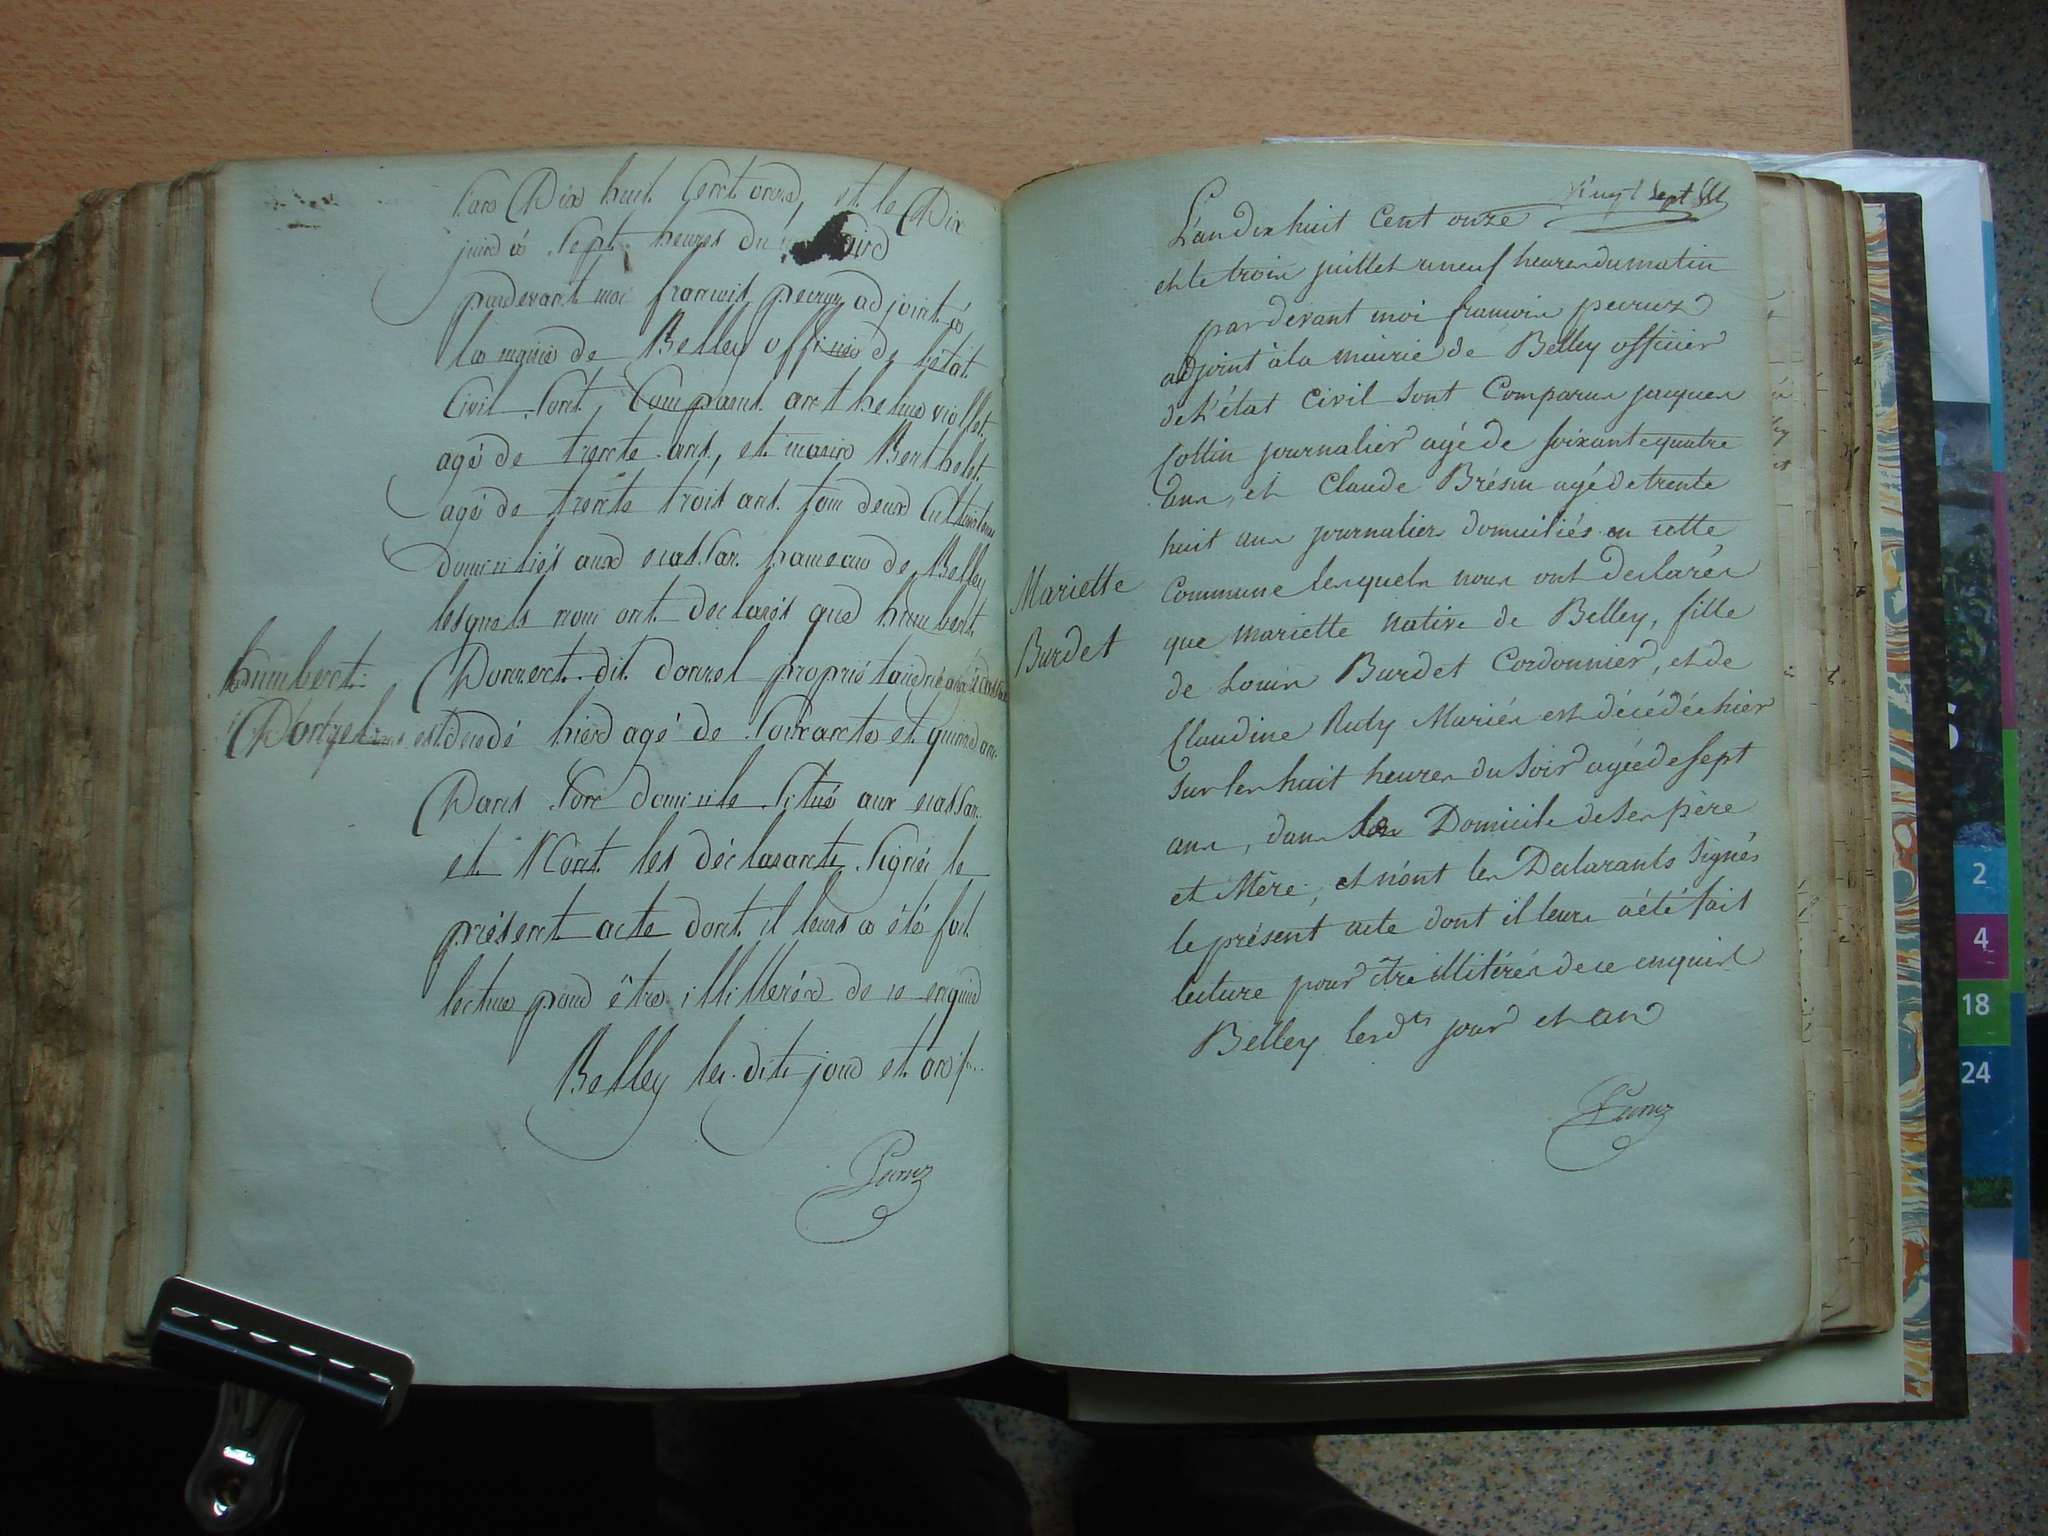 L'an Dix huit Cent onze, et le Dix
juin à Sept heures du soird
pardevant moi françois peyruz adjoint à
la mairie de Belley officier de l'état
Civil Sont Comparus anthelme viollet
agé de trente ans, et marin Berthelet
agé de trente trois ans tous deux Cultivateurs
Domiciliés aux ecassaz hameau de Belley
lesquels nous ont déclarés que humbert
humbert
Donzel
Donzert dit donzel propriétaire
est décédé hier agé de Soixante et quinze ans
Dans Son domicile Situé aux ecassaz
et N'ont les déclarants Signés le
présent acte dont il leurs a été fait
lecture pour être illitérés de ce enquis
Belley les dits jour et an
Peyruz
Vingt Sept
L'an dix huit Cent onze
et le trois juillet a neuf heures du matin
pardevant moi françois peyruz
adjoint à la mairie de Belley officier
de l'état Civil sont Comparus jacques
Collin journalier agé de soixante quatre
ans, et Claude Brésin agé de trente
huit ans journalier domiciliés en cette
Commune lesquels nous ont déclarés
Mariette
Burdet
que mariette native de Belley, fille
de Louis Burdet Cordonnier, et de
Claudine Rudy Mariés est décédée hier
sur les huit heures du Soir agée de Sept
ans, dans le Domicile de Ses père
et Mère, et n'ont les Declarants Signés
le présent acte dont il leurs a été fait
lecture pour être illitérés de ce enquis
Belley lesd.ts jour et an
Peyruz
2
4
18
24